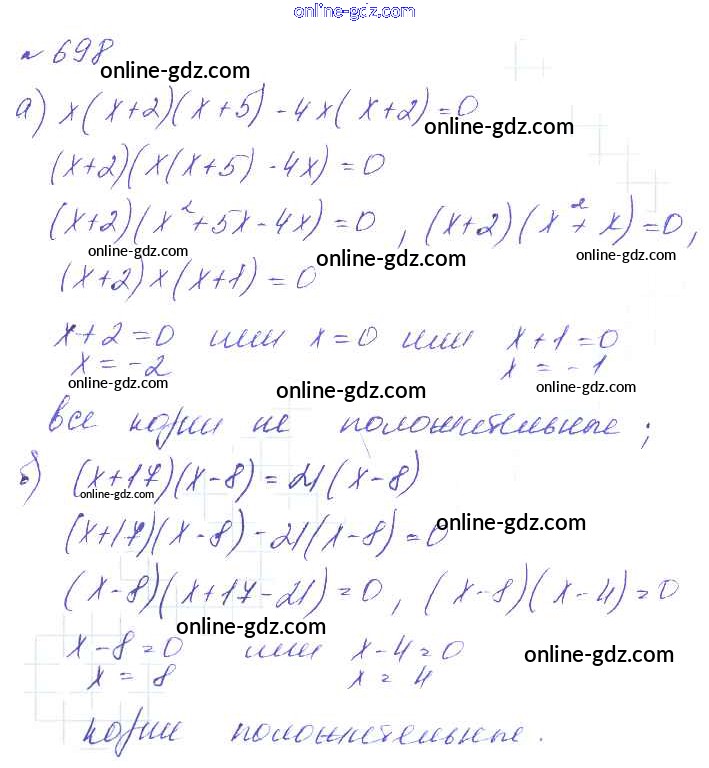 online-gdz.com
№ 698
online-gdz.com
а) x(x+2)(x+5) - 4x(x+2) = 0
online-gdz.com
(x+2)(x(x+5) - 4x) = 0
(x+2)(x²+5x-4x) = 0, (x+2)(x²+x) = 0,
online-gdz.com online-gdz.com online-gdz.com
(x+2)x(x+1) = 0
x+2=0 или x=0 или x+1=0
x=-2 x=-1
online-gdz.com online-gdz.com online-gdz.com
все корни не положительные;
б) (x+17)(x-8) = 21(x-8)
online-gdz.com
(x+17)(x-8) - 21(x-8) = 0
online-gdz.com
(x-8)(x+17-21) = 0, (x-8)(x-4) = 0
online-gdz.com
x-8=0 или x-4=0
online-gdz.com
x = 8 x = 4
корни положительные.